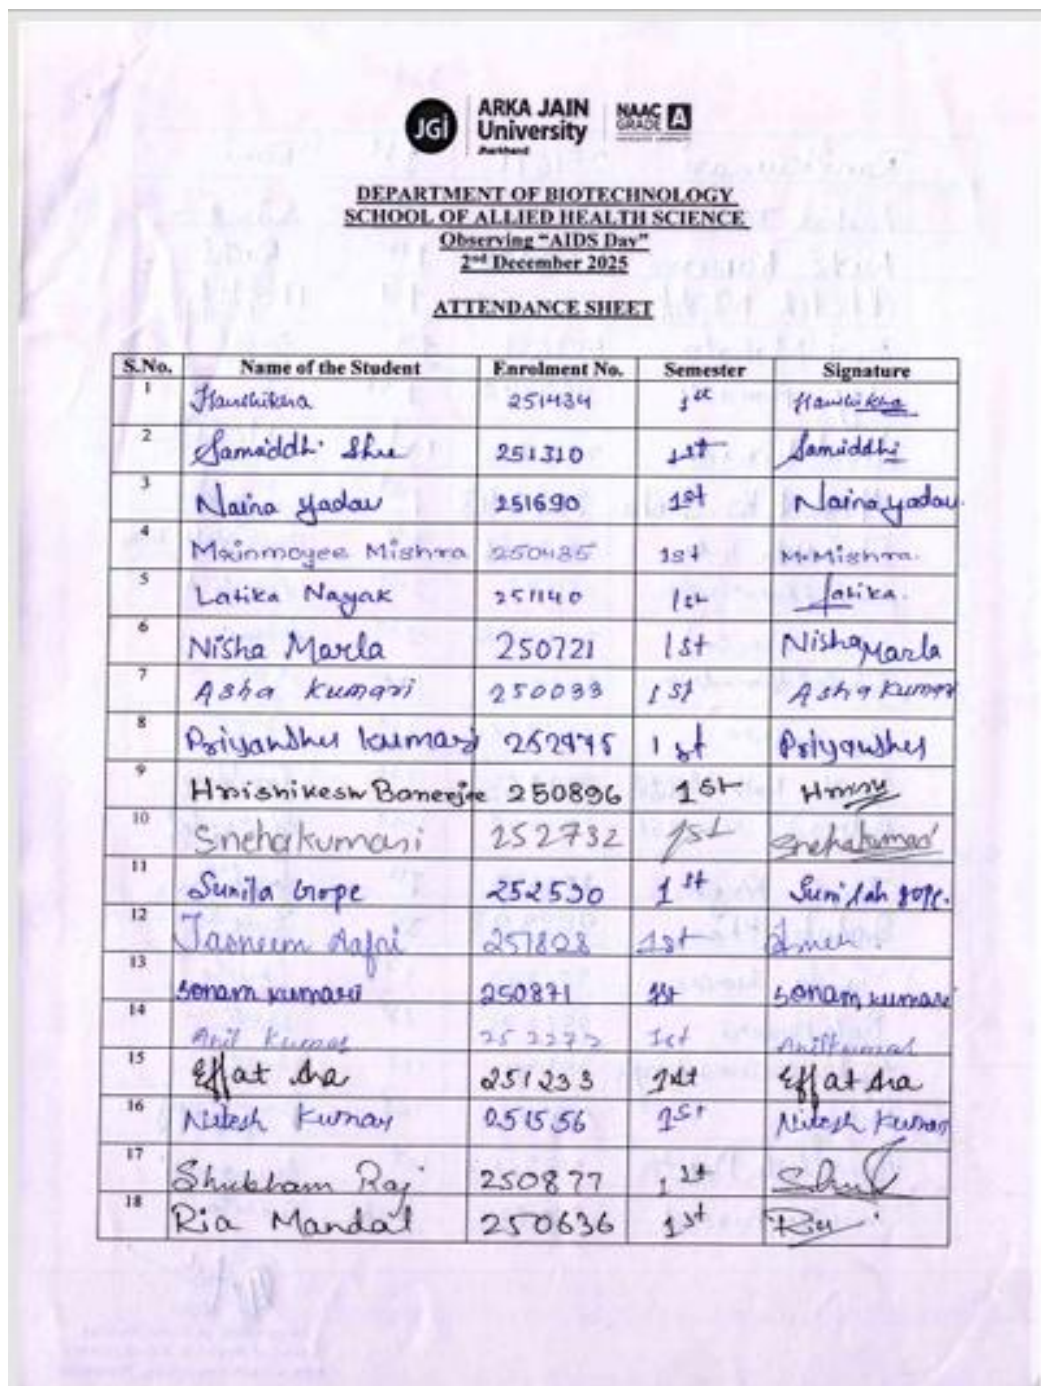 JGi ARKA JAIN University Jharkhand NAAC GRADE A
DEPARTMENT OF BIOTECHNOLOGY
SCHOOL OF ALLIED HEALTH SCIENCE
Observing "AIDS Day"
2nd December 2025
ATTENDANCE SHEET
S.No. Name of the Student Enrolment No. Semester Signature
1 251434 1st
2 Samriddhi Shree 251310 1st Samriddhi
3 Naina yadav 251690 1st Naina yadav.
4 Mrinmoyee Mishra 250485 1st M.Mishra.
5 Latika Nayak 251140 1st Latika.
6 Nisha Marla 250721 1st Nisha Marla
7 Asha Kumari 250033 1st Asha Kumari
8 Priyanshu Kumari 1st Priyanshu
9 Hrishikesh Banerjee 250896 1st
10 Sneha kumari 252732 1st Sneha kumari
11 Sunita Gope 252530 1st Gope.
12 Tasneem 251808 1st
13 Sonam kumari 250871 1st Sonam kumari
14 Anil Kumar 1st Anil kumar
15 Effat 251233 1st Effat
16 Nitesh Kumar 251556 1st Nitesh Kumar
17 Shubham Raj 250877 1st
18 Ria Mandal 250636 1st Ria